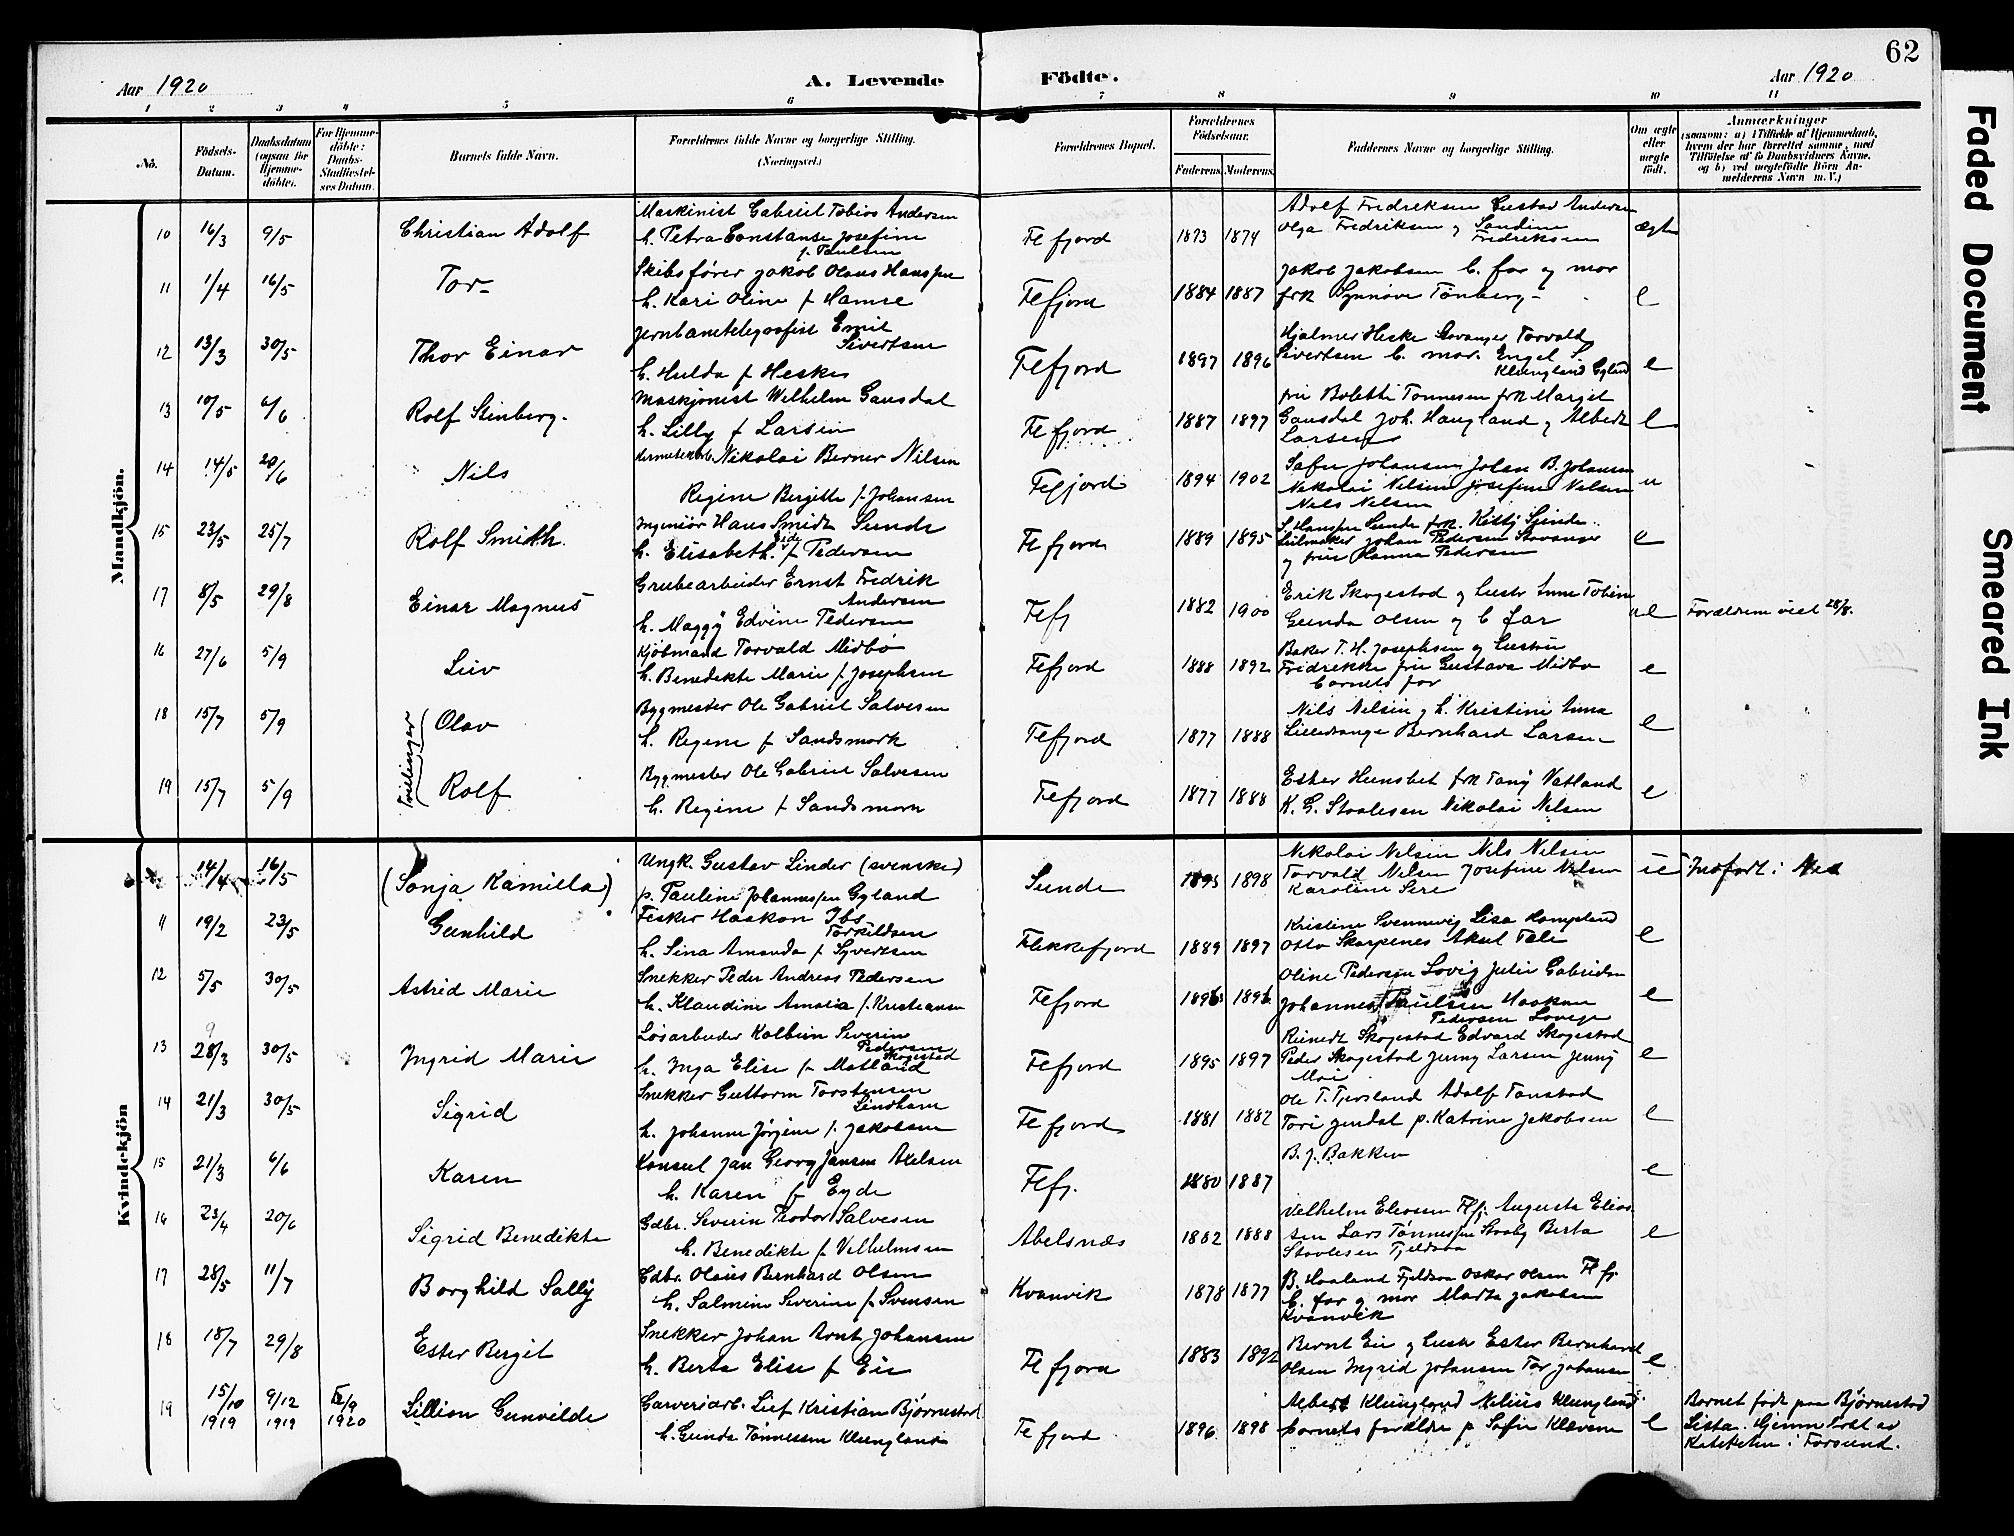 62
Aar 1920
A. Levende
Födte.
Aar 1920
1 2 3 4 5 6 7 8 9 10 11
No.
Födsels-Datum.
Daabsdatum (ogsaa för Hjemme-döbte).
For Hjemme-döbte: Daabs-Stadfæstel-ses Datum.
Barnets fulde Navn.
Forældrenes fulde Navne og borgerlige Stilling.
(Næringsvei.)
Forældrenes Bopæl.
Forældrenes Födselsaar.
Faderens. Moderens.
Faddernes Navne og borgerlige Stilling.
Om ægte eller uægte födt.
Anmærkninger
(saasom: a) i Tilfælde af Hjemmedaab, hvem der har forrettet samme, med Tilföielse af to Daabsvidners Navne, og b) ved uægtefödte Börn An-melderens Navn m. V.)
Mandkjön.
10 16/3 9/5 Christian Adolf
Maskinist Gabriel Tobias Andersen
h. Petra Constanse Josefine
f. Paulsen
Flefjord 1873 1874
Adolf Fredriksen Gustav Andersen
Olga Fredriksen og Sandine
Fredriksen
ægte
11 1/4 16/5 Tor-
Skibsfører Jakob Olaus Hanssen
h. Kari Oline f Hamre
Flefjord 1884 1887
Jakob Jakobsen b. far og mor
frk Synnøve Tønberg- e
12 13/3 30/5 Thor Einar
Jernbanetelegrafist Emil
Sivertsen
h. Hulda f Heskes
Flefjord 1897 1896
Hjalmer Heske Stavanger Torvald
Sivertsen b. mor. Engel S.
Klungland Gyland e
13 10/5 6/6 Rolf Stinberg.
Maskjonist Wilhelm Gausdal
h. Lilly f Larsen
Flefjord 1887 1897
fru Boletti Tønnesen frk Margit
Gausdal Joh. Haugland og Albert
Larsen e
14 14/5 20/6 Nils
Nikolai Berner Nilsen
Regine Bergitte f. Johansen
Flefjord 1894 1902
Sofie Johansen Johan B. Johansen
Nikolai Nilsen Josefine Nilsen
Nils Nilsen
u
15 23/5 25/7 Rolf Smidth.
Ingeniør Hans Smidt Sunde
h. Elisabeth f Pedersen
Flefjord 1889 1895
S. Hanssen Sunde frk. Kitty Sunde
Seilmaker Johan Pedersen Stavanger
og fru Hanna Pedersen e
17 8/5 29/8 Einar Magnus
Grubearbeider Ernst Fredrik
Andersen
h. Maggy Edvine Pedersen
Flefj 1882 1900
Erik Skogestad og hustr Anne Tobine
Gunda Olsen og b far
Forældrene viet 28/8.
16 27/6 5/9 Liv
Kjøbmand Torvald Midbø
h. Benedikte Marie f. Josephsen
Flefjord 1888 1892
Baker T. H. Josephsen og hustru
Fredrikke fru Gustava Midbø
barnets far e
Tvillinger
18 15/7 5/9 Olav
Bygmester Ole Gabriel Salvesen
h. Regine f Sandsmark
Flefjord 1877 1888
Nils Nilsen og h. Kristine Anna
Lilledrange Bernhard Larsen e
19 15/7 5/9 Rolf
Bygmester Ole Gabriel Salvesen
h. Regine f Sandsmark
Flefjord 1877 1888
Ester Hunsbet frk Fany Vatland
K. G. Staalesen Nikolai Nilsen e
Kvindekjön
14/4 16/5 (Sonja Kamilla)
Ungk. Gustav Linder (svenske)
p. Pauline Johannessen Gyland
Sunde 1895 1898
Nikolai Nilsen Nils Nilsen
Torvald Nilsen Josefine Nilsen
Karoline Sire
Indført i
11 19/2 23/5 Gunhild
Fisker Haakon Ibs
Torkildsen
h. Sina Amanda f Syvertsen
Flekkefjord 1889 1897
Kristine Svennevig Lisa Kongsland
Osto Skarpenes Aksel Tele e
12 5/5 30/5 Astrid Marie
Snekker Peder Andreas Pedersen
h. Klaudine Amalia f. Kristiansen
Flefjord 1896 1896
Oline Pedersen Lovig Julie Gabrielsen
Johannes Paulsen Haakon
Pedersen Lovige e
13 28/3 30/5 Ingrid Marie
Løsarbeider Kolbein Severin
Pedersen
Skogestad
h. Inga Elise f. Motland
Flefjord 1895 1897
Reinert Skogestad Edvard Skogestad
Peder Skogestad Jenny Larsen Jenny
Moi e
14 21/3 30/5 Sigrid
Snekker Guttorm Torstensen
Lindhom
h. Johanne Jørgine f. Jakobsen
Flefjord 1881 1882
Ole T. Tjorsland Adolf Tonstad
Tori Jendal p. Katrine Jakobsen e
15 21/3 6/6 Karen
Konsul Jan Georg Jansen Axelsen
h. Karen f Eyde
Flefj. 1880 1887
B. J. Bakken
e
16 23/4 20/6 Sigrid Benedikte
Gdbr. Severin Teodor Salvesen
h. Benedikte f Velhelmsen
Abelsnæs 1882 1888
Velhelm Eliasen Flfj. Augusta Elias
sen Lars Tønnessen Berta
Staalesen Fjeldsaa
e
17 28/5 11/7 Borghild Sally
Gdbr. Olaus Bernhard Olsen
h. Salmine Severine f Svensen
Kvanvik 1878 1877
B. Haaland Fjeldsaa Oskar Olsen Flfj.
b. far og mor Marta Jakobsen
Kvanvik
18 18/7 29/8 Ester Bergit
Snekker Johan Arnt Johansen
h. Berta Elise f Eie
Flefjord 1883 1892
Bernt Eie og hustr Ester Bernhard
Olsen Ingrid Johansen Tor Johansen e
19 15/10 1919 9/12 1919 /9 1920 Lillian Gunvilde
Garveriarb. Lief Kristian Bjørnestad
h. Gunda Tønnessen Klungland
Flefjord 1896 1898
Albert Klungland Nilius Klungland
barnets forældre p Sofie Klevene e
Barnet født paa Bjørnestad
Lista. Hjemmedøbt av
Kateketen i Farsund.
Faded Document
Smeared Ink